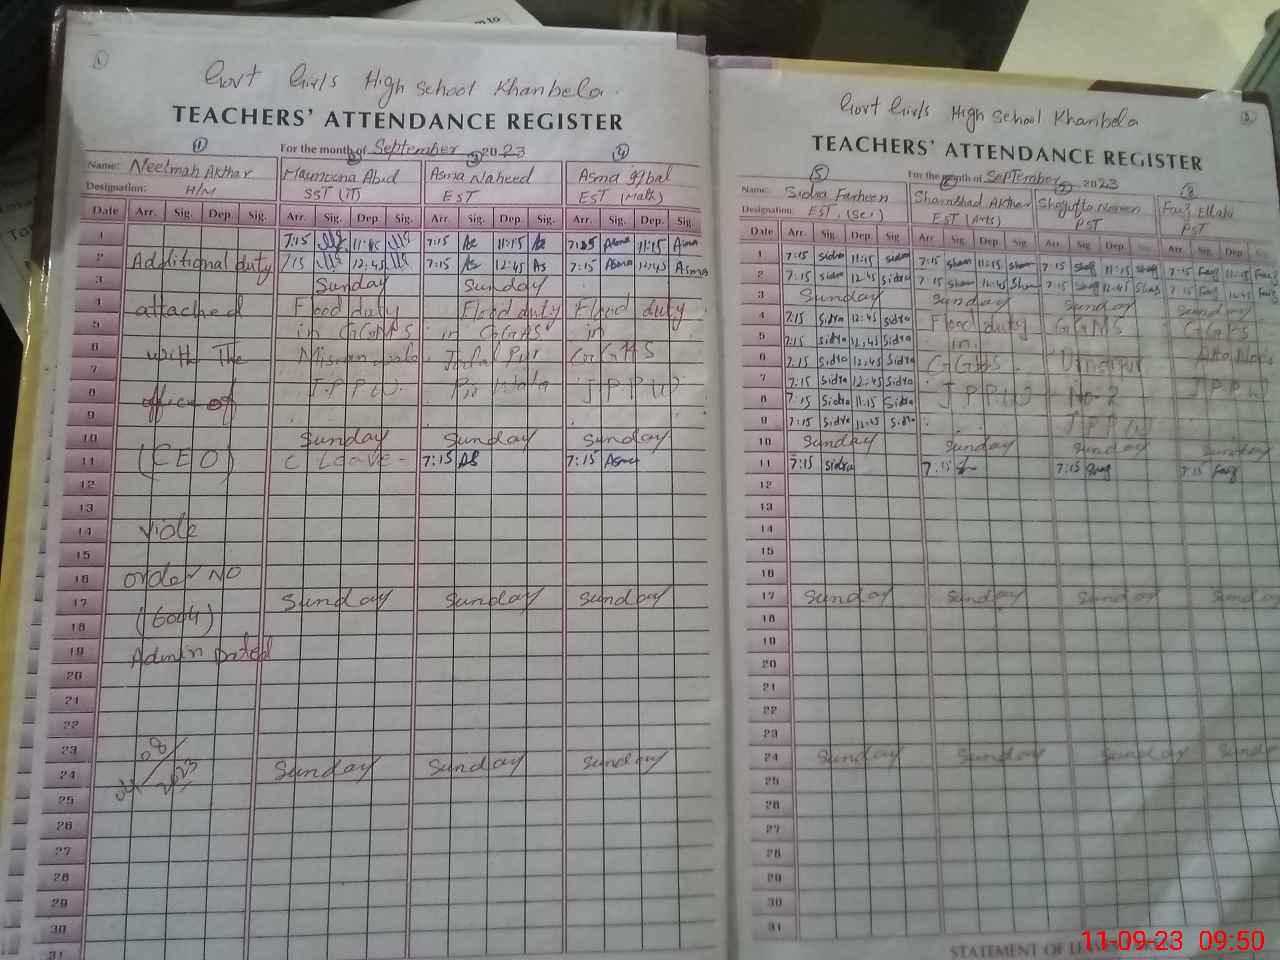 Govt Girls High School Khanbela.
TEACHERS' ATTENDANCE REGISTER
For the month of September 2023
① ② ③ ④
Name: Neelmah Akhtar Maimoona Abid Asma Naheed Asma Iqbal
Designation: H/M SST (IT) EST EST (Math)
Date Arr. Sig. Dep. Sig. Arr. Sig. Dep. Sig. Arr. Sig. Dep. Sig. Arr. Sig. Dep. Sig.
1 7:15 11:15 7:15 As 11:15 As 7:15 Asma 11:15 Asma
2 Additional duty 7:15 12:45 7:15 As 12:45 As 7:15 Asma 12:45 Asma
3 Sunday Sunday
4 attached Flood duty Flood duty Flood duty
5 in GGMPS in GGPS in
6 with The Jalal Pur GGHS
7
8 office of J.P.P.W. Pir Wala J P P W
9
10 Sunday Sunday Sunday
11 (CEO) C Leave - 7:15 As 7:15 Asma
12
13
14 viole
15
16 order NO
17 Sunday Sunday Sunday
18 (6044)
19 Admin Dated
20
21
22
23 08
24 2023 Sunday Sunday Sunday
25
26
27
28
29
30
31
Govt Girls High School Khanbela
TEACHERS' ATTENDANCE REGISTER
For the month of September 2023
⑤ ⑧
Name: Sidra Farheen Shamshad Akhtar Shagufta Faiz Ellahi
Designation: EST. (Sci) EST (Arts) PST PST
Date Arr. Sig. Dep. Sig. Arr. Sig. Dep. Sig. Arr. Sig. Dep. Sig. Arr. Sig. Dep
1 7:15 sidra 11:15 sidra 7:15 sham 11:15 sham 7:15 shag 11:15 shag 7:15 Faiz 11:15 Faiz
2 7:15 sidra 12:45 sidra 7:15 sham 12:45 sham 7:15 shag 12:45 shag 7:15 Faiz 12:45 Faiz
3 Sunday Sunday Sunday Sunday
4 7:15 sidra 12:45 sidra Flood duty GGMS GGPS
5 7:15 sidra 12:45 sidra in
6 7:15 sidra 12:45 sidra
7 7:15 sidra 12:45 sidra No-2 J P P W
8 7:15 sidra 11:15 sidra J P P W J P P W
9 7:15 sidra 12:45 sidra
10 Sunday Sunday Sunday Sunday
11 7:15 sidra 7:15 7:15 shag 7:15 Faiz
12
13
14
15
16
17 Sunday Sunday Sunday Sunday
18
19
20
21
22
23
24 Sunday Sunday Sunday Sunday
25
26
27
28
29
30
31
STATEMENT OF
11-09-23 09:50